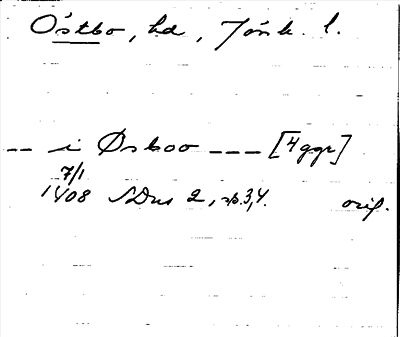 Östbo, hd, Jönk. l.
-- i Øsboo --- [4 ggr]
7/1
1408 SDns 2, s. 3, 4. orig.